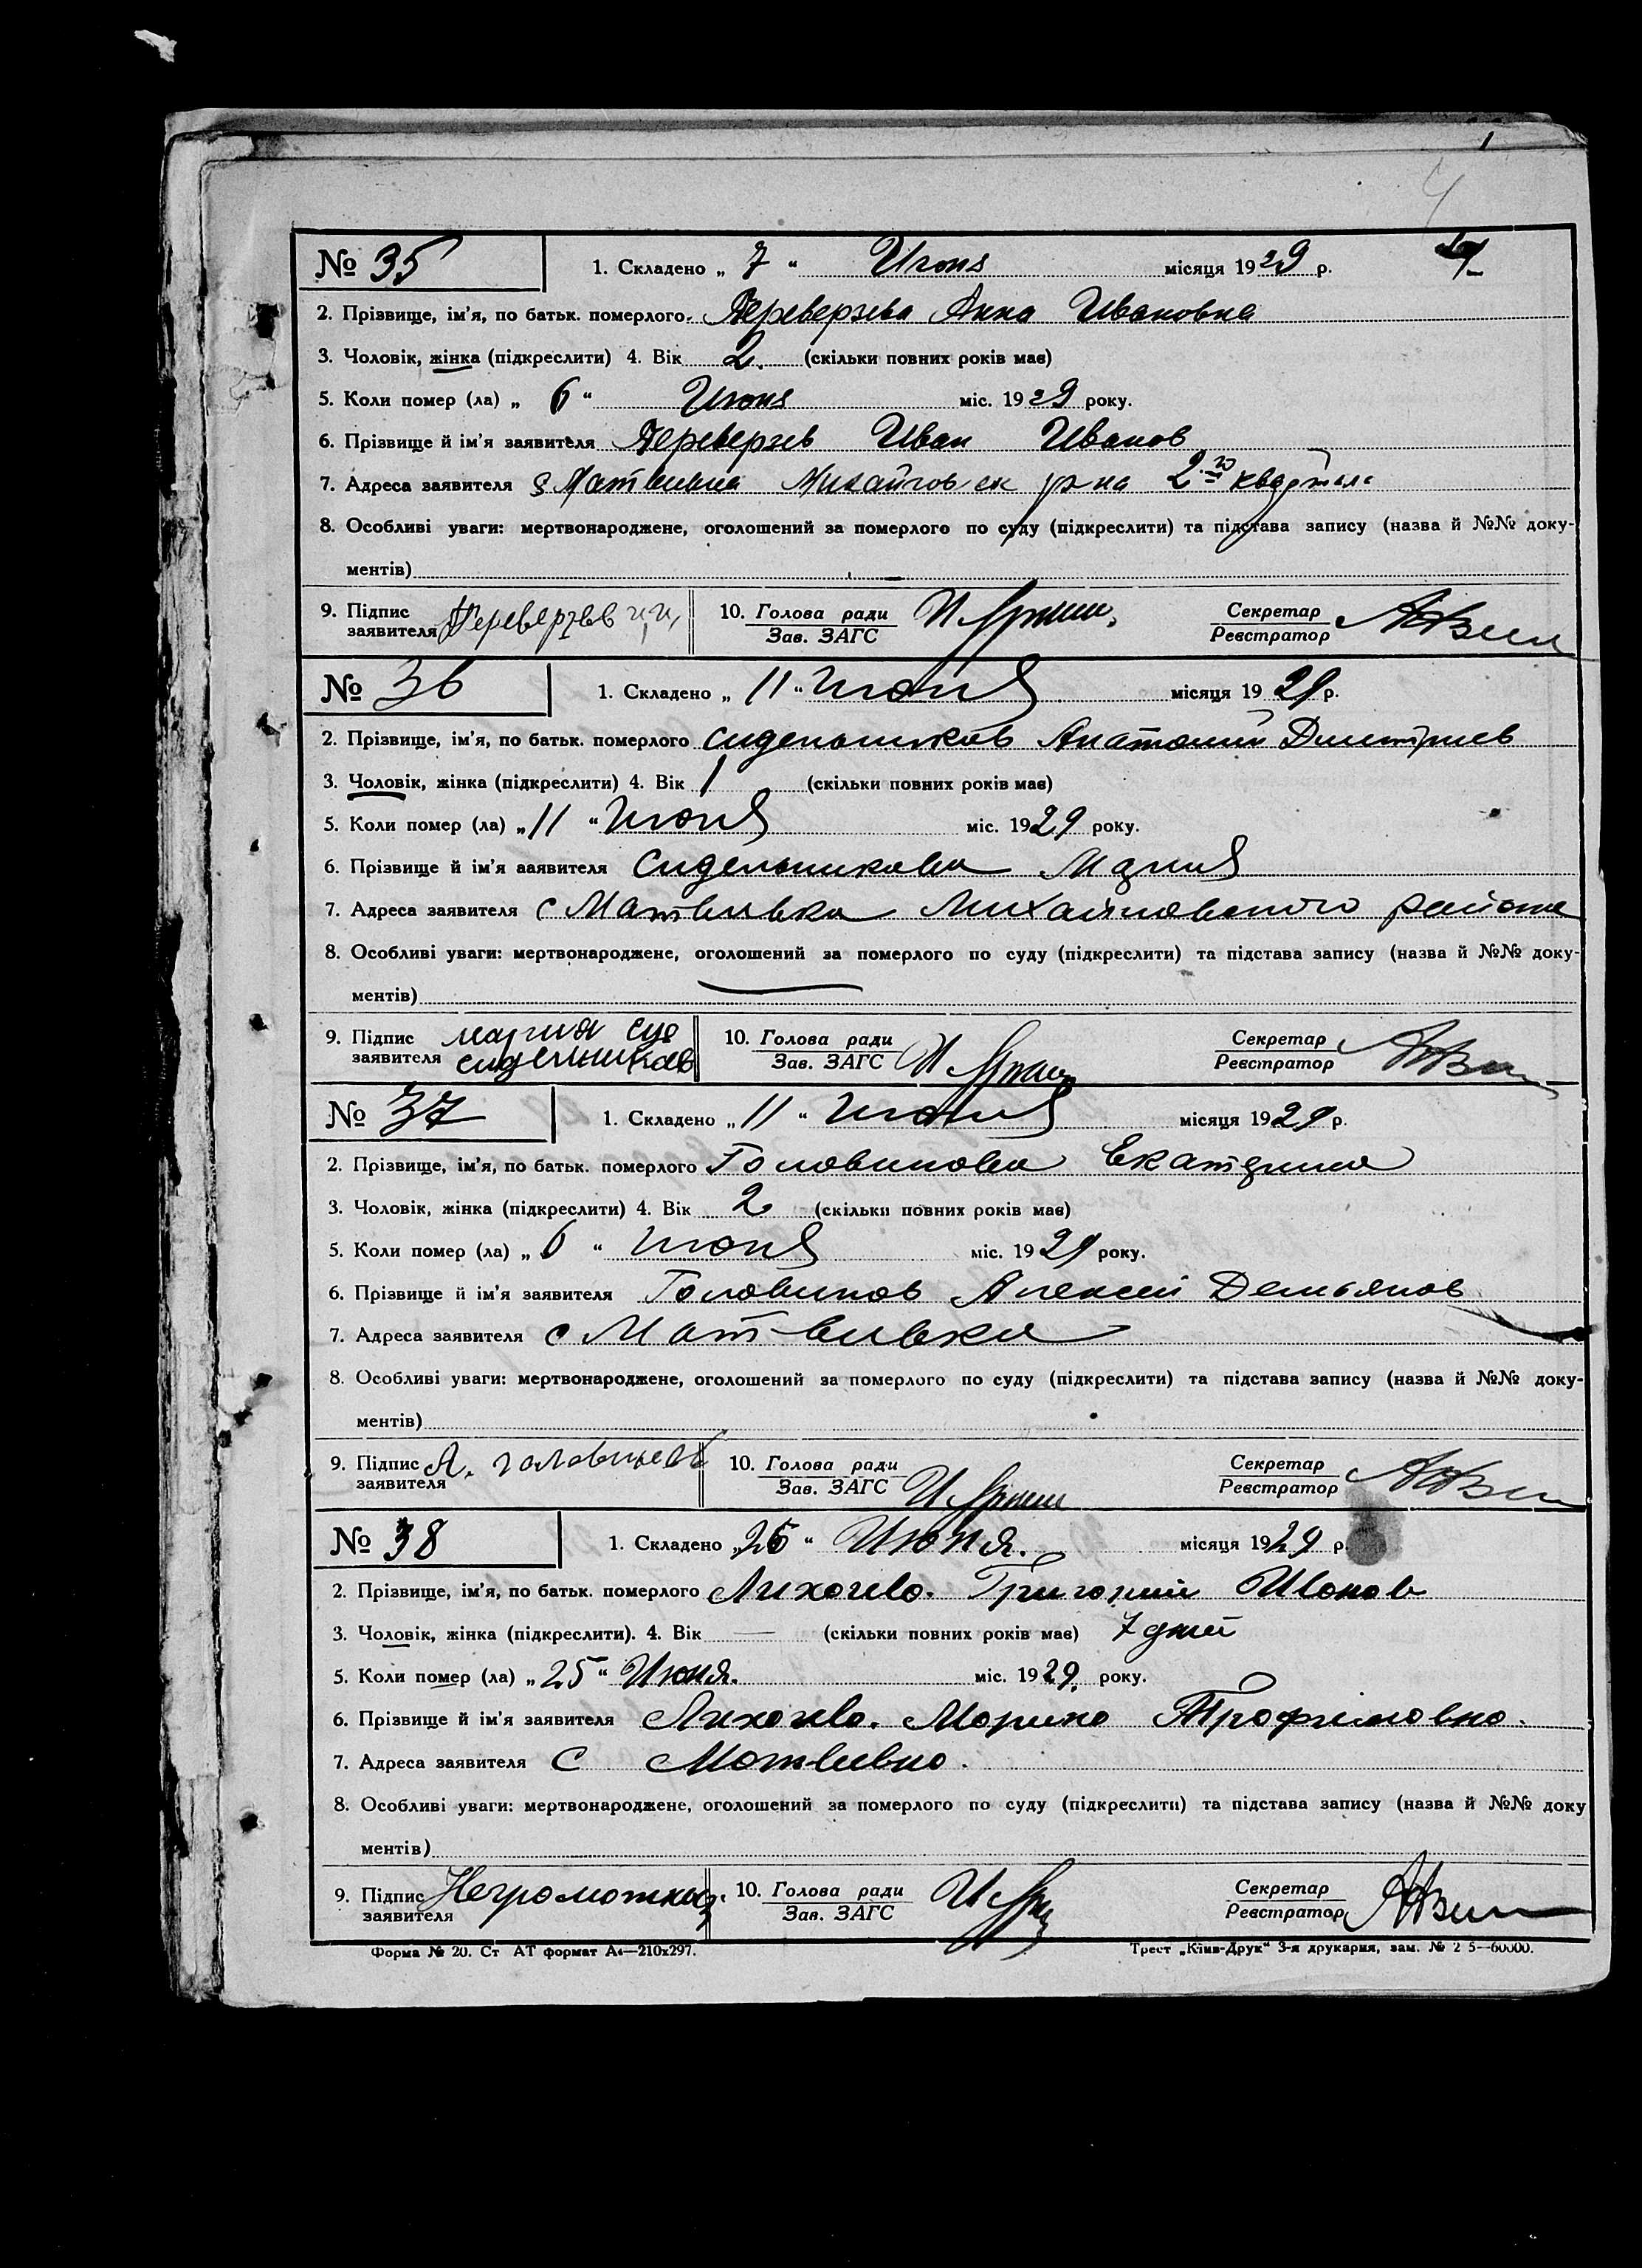 4
№ 35 1. Складено „ 7 “ Июня місяця 1929 р.
2. Прізвище, ім'я, по батьк. померлого. Переверзева Анна Ивановна
3. Чоловік, жінка (підкреслити) 4. Вік 2. (скільки повних років має)
5. Коли помер (ла) „ 6 “ Июня міс. 1929 року.
6. Прізвище й ім'я заявителя Переверзев Иван Иванов
7. Адреса заявителя Михайлов ск р на 2го квартала
8. Особливі уваги: мертвонароджене, оголошений за померлого по суду (підкреслити) та підстава запису (назва й №№ доку-
ментів)
9. Підпис заявителя Переверзев И, И, 10. Голова ради Зав. ЗАГС Секретар Реєстратор
№ 36 1. Складено „ 11 “ Июня місяця 1929 р.
2. Прізвище, ім'я, по батьк. померлого Сидельников Анатолий Дмитриев
3. Чоловік, жінка (підкреслити) 4. Вік 1 (скільки повних років має)
5. Коли помер (ла) „ 11 “ Июня міс. 1929 року.
6. Прізвище й ім'я заявителя Сидельникова Мария
7. Адреса заявителя с Матвиивка Михайловского района
8. Особливі уваги: мертвонароджене, оголошений за померлого по суду (підкреслити) та підстава запису (назва й №№ доку-
ментів)
9. Підпис заявителя мария сидельников 10. Голова ради Зав. ЗАГС Секретар Реєстратор
№ 37 1. Складено „ 11 “ Июня місяця 1929 р.
2. Прізвище, ім'я, по батьк. померлого Головинова Екатерина
3. Чоловік, жінка (підкреслити) 4. Вік 2 (скільки повних років має)
5. Коли помер (ла) „ 6 “ Июня міс. 1929 року.
6. Прізвище й ім'я заявителя Головинов Алексей Демьянов
7. Адреса заявителя с Матвиивка
8. Особливі уваги: мертвонароджене, оголошений за померлого по суду (підкреслити) та підстава запису (назва й №№ доку-
ментів)
9. Підпис заявителя А. 10. Голова ради Зав. ЗАГС Секретар Реєстратор
№ 38 1. Складено „ 26 “ Июня. місяця 1929 р.
2. Прізвище, ім'я, по батьк. померлого Григорий Иванов
3. Чоловік, жінка (підкреслити). 4. Вік — (скільки повних років має) 7 дней
5. Коли помер (ла) „ 25 “ Июня. міс. 1929. року.
6. Прізвище й ім'я заявителя Марина Трофимовна.
7. Адреса заявителя С
8. Особливі уваги: мертвонароджене, оголошений за померлого по суду (підкреслити) та підстава запису (назва й №№ доку
ментів)
9. Підпис заявителя 10. Голова ради Зав. ЗАГС Секретар Реєстратор
Форма № 20. Ст АТ формат А4—210x297. Трест „Київ-Друк“ 3-я друкарня, зам.